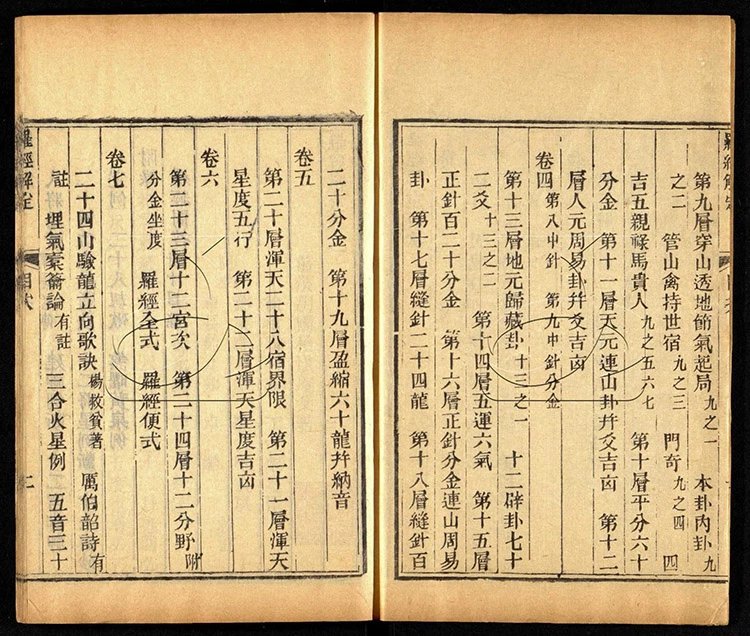 第九層穿山透地節氣起局 九之一 本卦內卦 九
之二 管山禽持世宿 九之三 門奇 九之四 四
吉五親祿馬貴人 九之五六七 第十層平分六十
分金 第十一層天元連山卦幷爻吉凶 第十二
層人元周易卦幷爻吉凶
卷四 第八中針 第九中針分金
第十三層地元歸藏卦 十三之一 十二辟卦七十
二爻 十三之二 第十四層五運六氣 第十五層
正針百二十分金 第十六層正針分金連山周易
卦 第十七層縫針二十四龍 第十八層縫針百
二十分金 第十九層盈縮六十龍幷納音
卷五
第二十層渾天二十八宿界限 第二十一層渾天
星度五行 第二十二層渾天星度吉凶
卷六
第二十三層十二宮次 第二十四層十二分野 附
分金坐度 羅經全式 羅經便式
卷七
二十四山驗龍立向歌訣 楊救貧著 厲伯韶詩 有
註 埋氣索骨論 有註 三合火星例 五音三十
羅經解定 目次 二